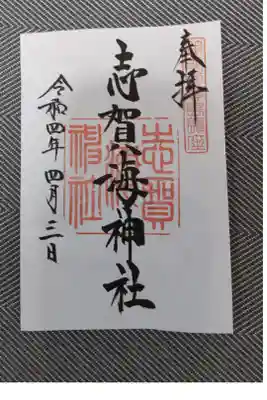 奉拝
志賀海神社
令和四年四月三日
志賀海神社